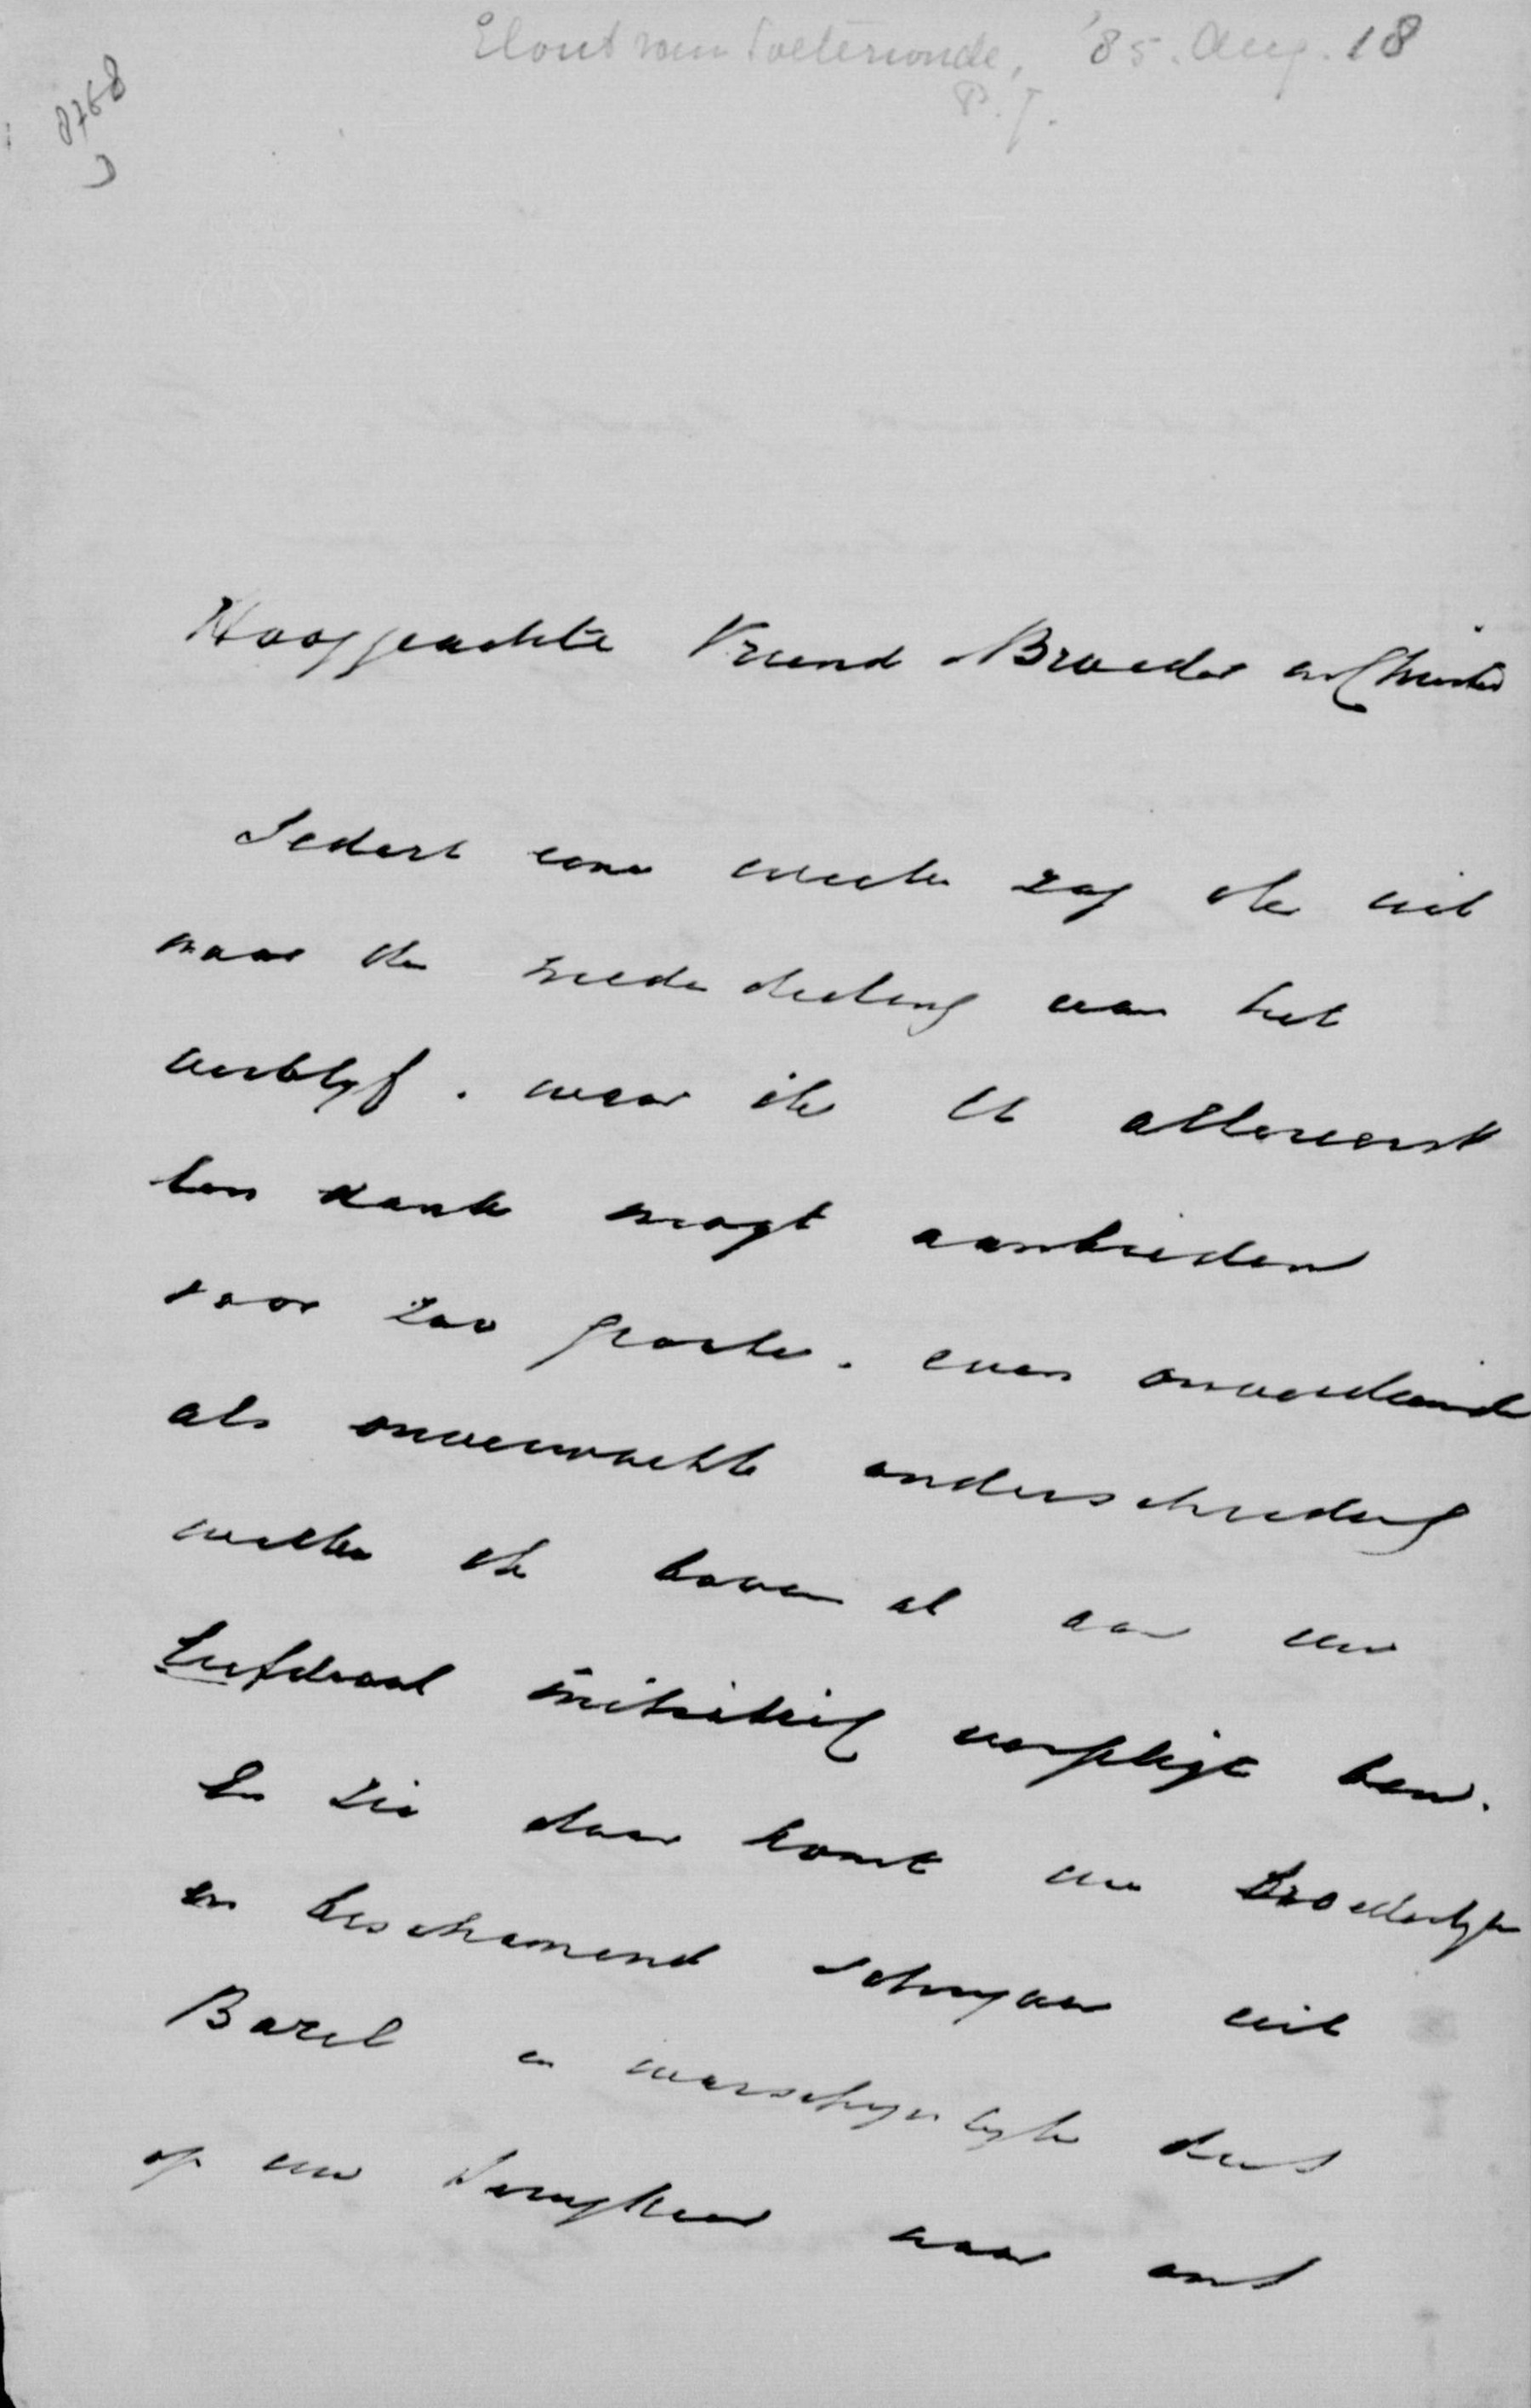 Elout van Soeterwoude, '85. Aug. 18
P.J.
8768
Hooggeachte Vriend Broeder in Christus
Sedert eene week zag ik uit
naar de mededeeling van het
verblyf. waar ik U allereerst
den dank mogt aanbieden
voor zoo groote. even onverdiende
als onverwachte onderscheiding
welke ik boven al aan uw
Liefderaal initiatief verpligt ben.
En zie daar komt uw broederlyk
en beschamend schryven uit
Bazel en waarschynlyk dus
op uw terugkeer naar ons